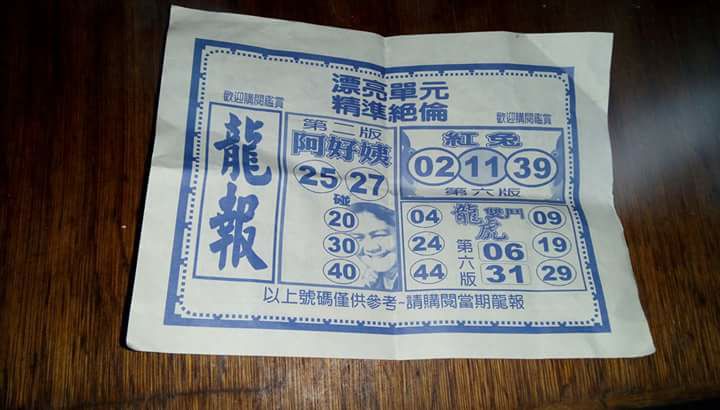 漂亮單元
精準絕倫
歡迎購閱鑑賞
歡迎購閱鑑賞
龍報
第二版
阿好姨
25 27
碰
20
30
40
紅兔
02 11 39
第六版
龍虎雙鬥
第六版
04
24
44
06
31
09
19
29
以上號碼僅供參考~請購閱當期龍報